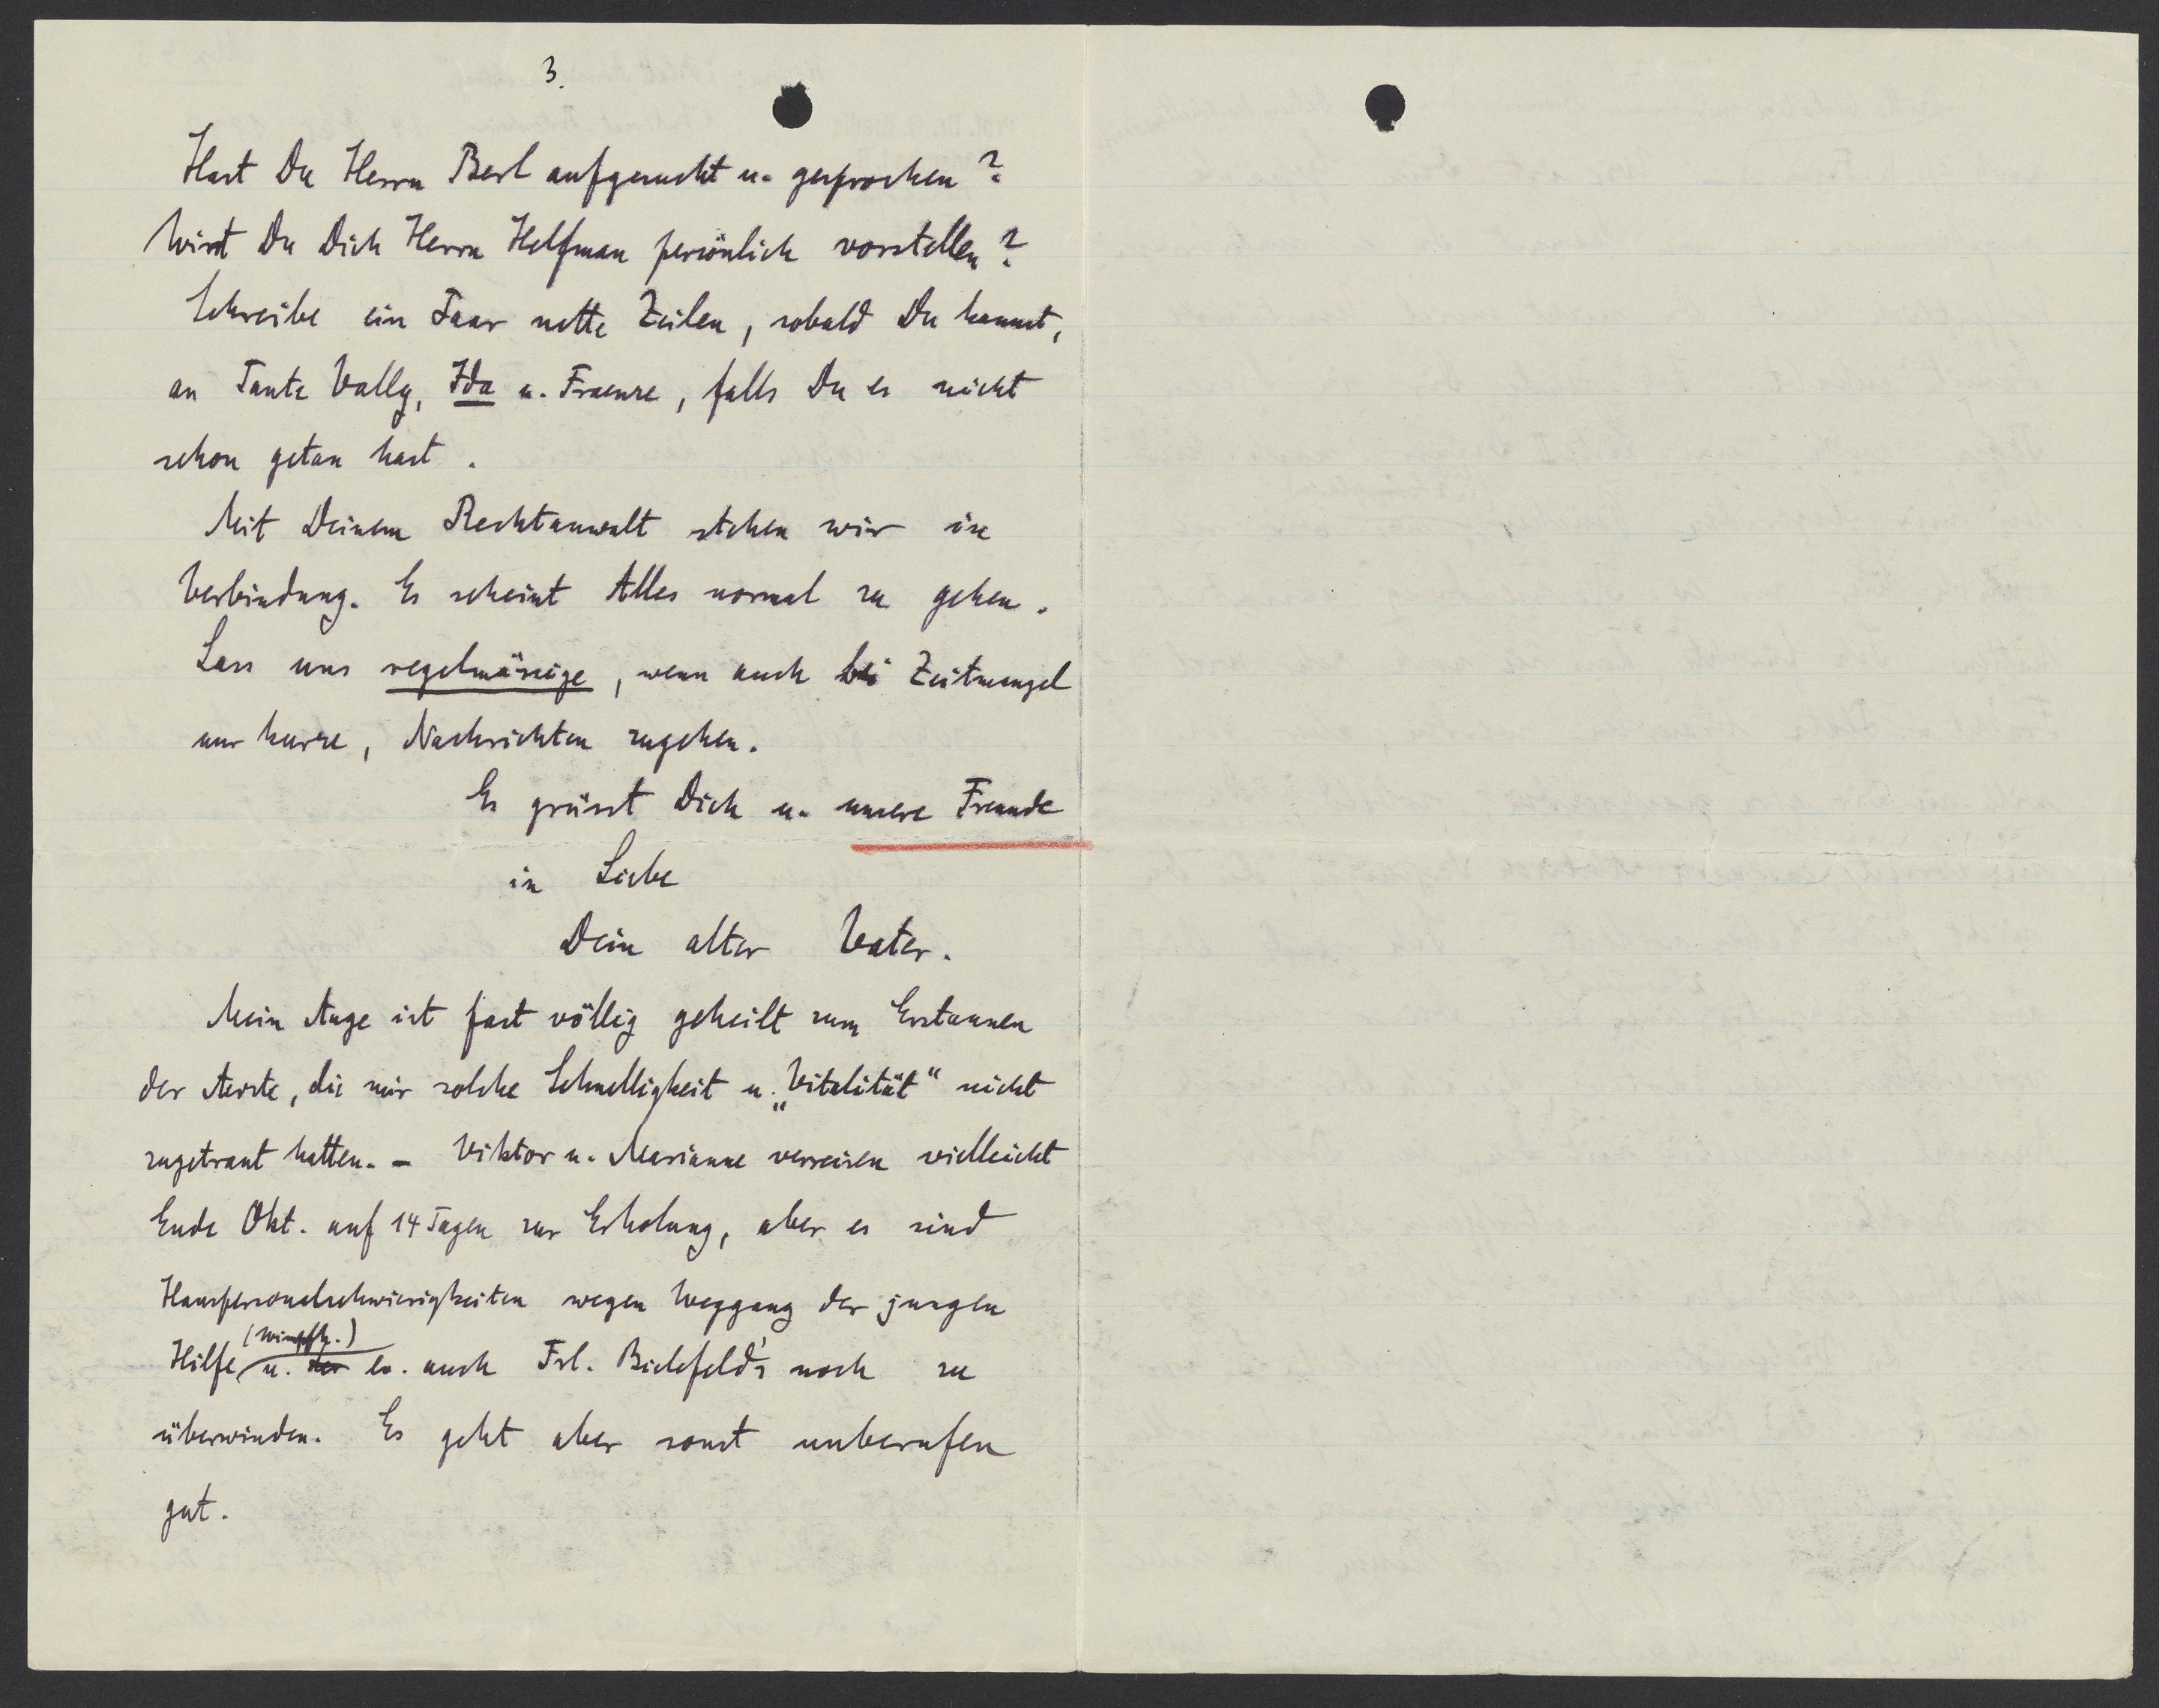 3.
Hast Du Herrn Berl aufgesucht u. gesprochen?
Wirst Du Dich Herrn Helfman persönlich vorstellen?
Schreibe ein Paar nette Zeilen, sobald Du kannst,
an Tante Vally, Ida u. Fraenze, falls Du es nicht
schon getan hast.
Mit Deinem Rechtanwalt stehen wir in
Verbindung. Es scheint Alles normal zu gehen.
Lass uns regelmässige, wenn auch bei Zeitmangel
nur kurze, Nachrichten zugehen.
Es grüsst Dich u. unsere Freunde
in Liebe
Dein alter Vater.
Mein Auge ist fast völlig geheilt zum Erstaunen
der Aerzte, die mir solche Schnelligkeit u. „Vitalität“ nicht
zugetraut hatten. – Viktor u. Marianne verreisen vielleicht
Ende Okt. auf 14 Tagen zur Erholung, aber es sind
Hauspersonalschwierigkeiten wegen Weggang der jungen
Hilfe u. der ev. auch Frl. Bielefeld's noch zu
überwinden. Es geht aber sonst unberufen
gut.